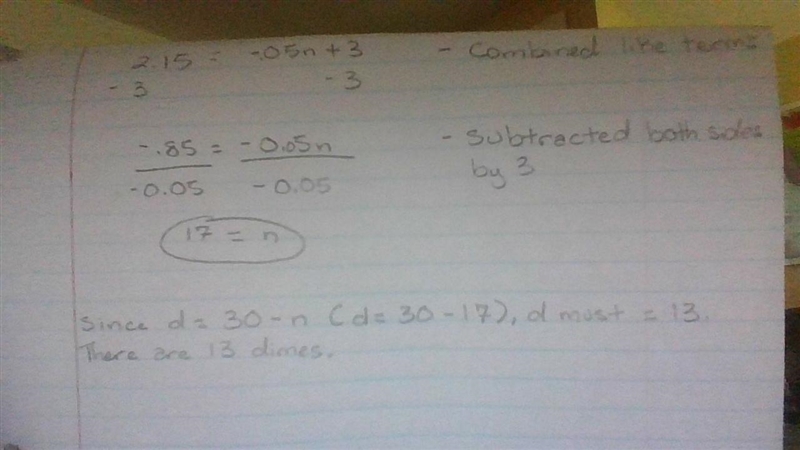 2.15 = -.05n + 3 - Combined like terms
- 3 - 3
-.85 = -0.05n - Subtracted both sides
-0.05 -0.05 by 3
17 = n
Since d = 30 - n (d = 30 - 17), d must = 13.
There are 13 dimes.